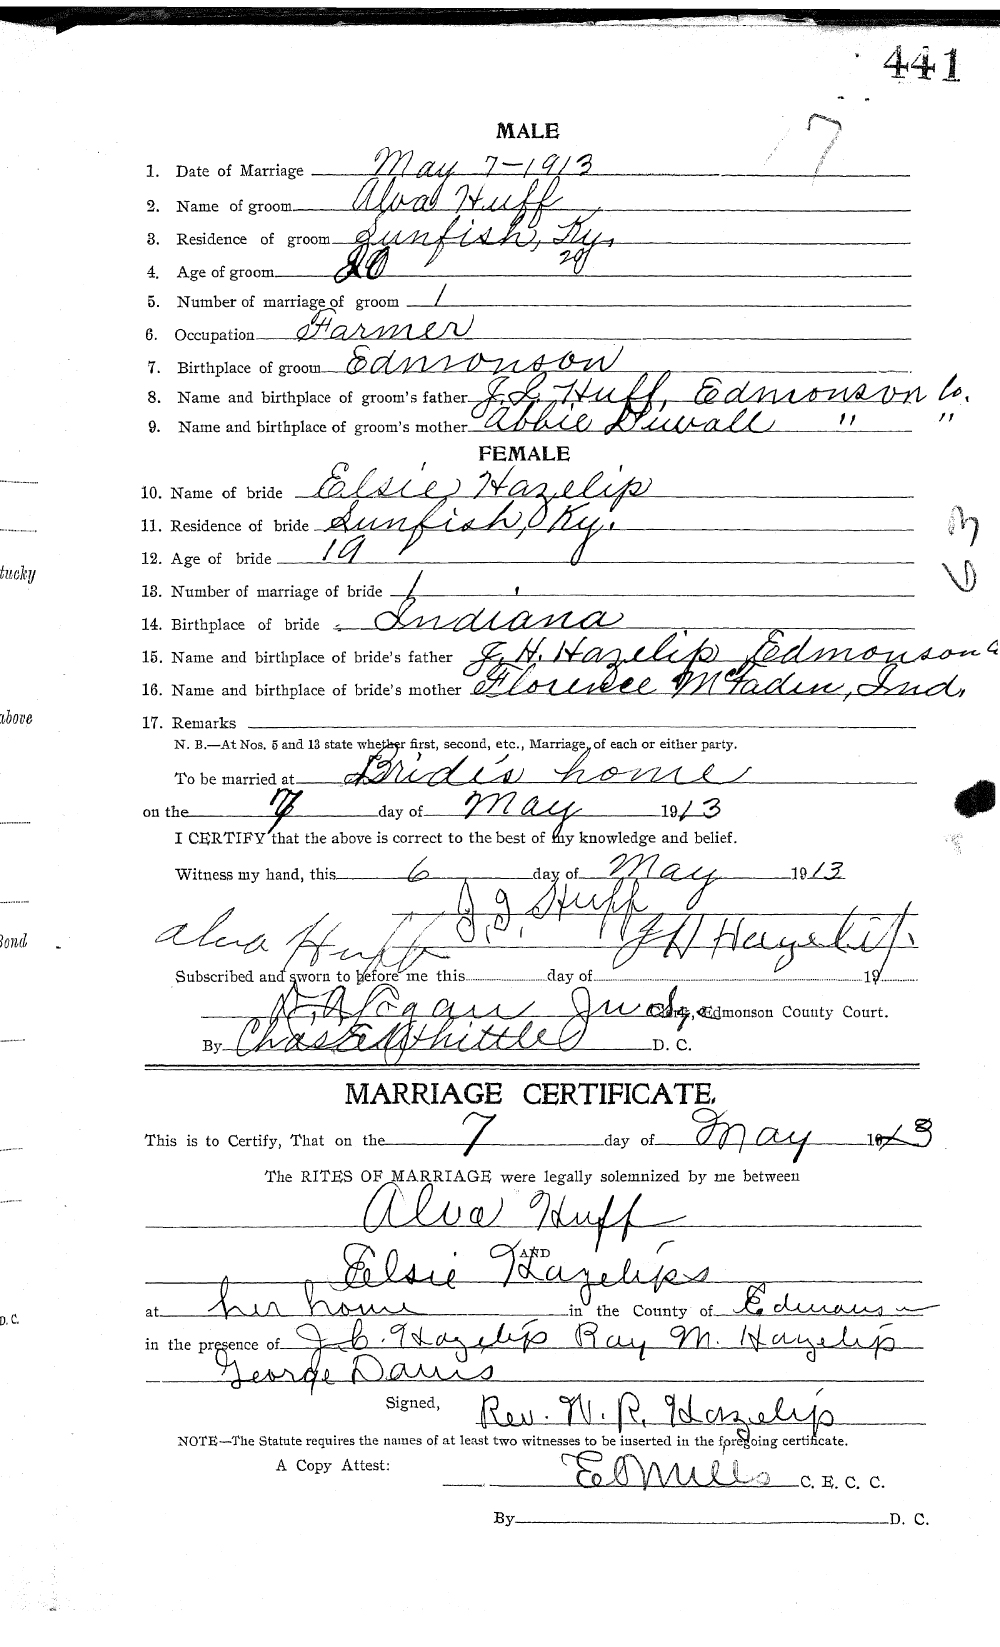 441
7
MALE
1. Date of Marriage May 7-1913
2. Name of groom Alva Huff
3. Residence of groom Sunfish, Ky.
4. Age of groom 20 20
5. Number of marriage of groom 1
6. Occupation Farmer
7. Birthplace of groom Edmonson
8. Name and birthplace of groom's father J. I. Huff, Edmonson Co.
9. Name and birthplace of groom's mother Abbie Duvall " "
FEMALE
10. Name of bride Elsie Hazelip
11. Residence of bride Sunfish, Ky.
12. Age of bride 19
13. Number of marriage of bride 1
14. Birthplace of bride Indiana
15. Name and birthplace of bride's father J. H. Hazelip Edmonson
16. Name and birthplace of bride's mother Florence McFaden, Ind.
17. Remarks
N. B.—At Nos. 5 and 13 state whether first, second, etc., Marriage, of each or either party.
To be married at Bride's home
on the 7 day of May 1913
I CERTIFY that the above is correct to the best of my knowledge and belief.
Witness my hand, this 6 day of May 1913
J. J. Huff
Alva Huff J H Hazelip
Subscribed and sworn to before me this day of 19
Logan Judge Edmonson County Court.
By Chas E Whittle D. C.
MARRIAGE CERTIFICATE.
This is to Certify, That on the 7 day of May 1913
The RITES OF MARRIAGE were legally solemnized by me between
Alva Huff
AND
Elsie Hazelips
at her home in the County of Edmonson
in the presence of J. C. Hazelip Ray M. Hazelip
George Davis
Signed, Rev. W. R. Hazelip
NOTE—The Statute requires the names of at least two witnesses to be inserted in the foregoing certificate.
A Copy Attest: E O Mills C. E. C. C.
By D. C.
tucky
above
Bond
D. C.